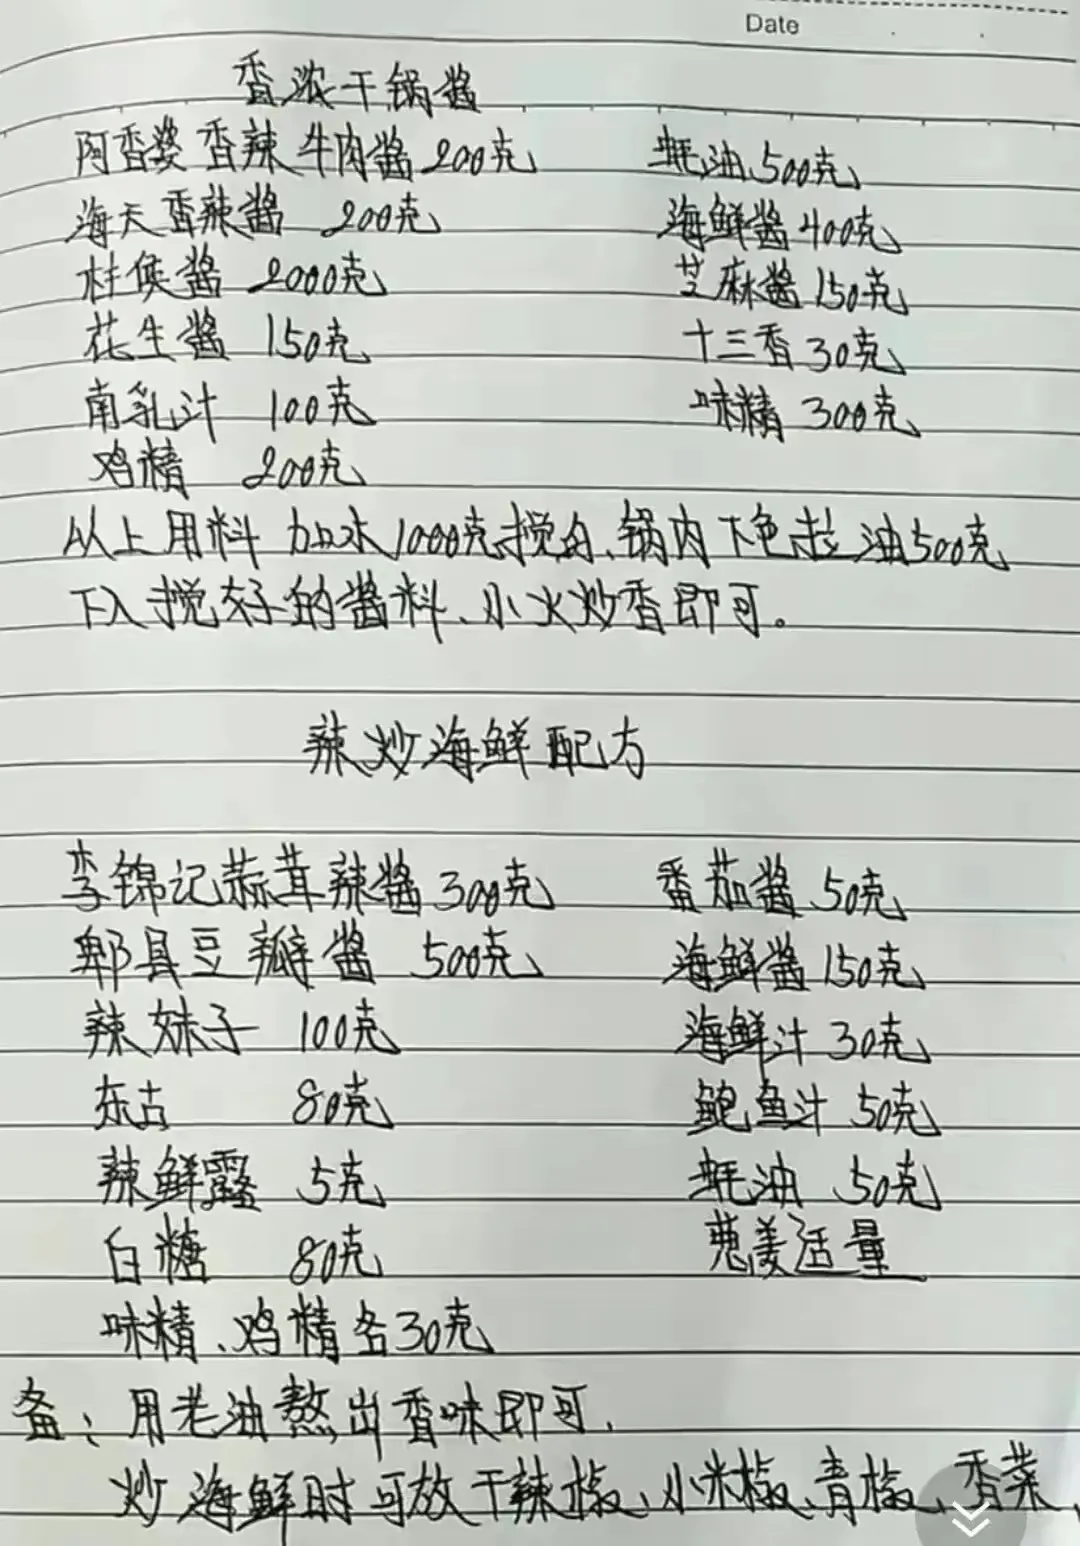 Date
香浓干锅酱
阿香婆香辣牛肉酱 200克 蚝油 500克
海天香辣酱 200克 海鲜酱 400克
柱侯酱 2000克 芝麻酱 150克
花生酱 150克 十三香 30克
南乳汁 100克 味精 300克
鸡精 200克
以上用料加水1000克搅匀、锅内下色拉油500克
下入搅好的酱料、小火炒香即可。
辣炒海鲜配方
李锦记蒜茸辣酱 300克 番茄酱 50克
郫县豆瓣酱 500克 海鲜酱 150克
辣妹子 100克 海鲜汁 30克
东古 80克 鲍鱼汁 50克
辣鲜露 5克 蚝油 50克
白糖 80克 葱姜适量
味精、鸡精各30克
备：用老油熬出香味即可.
炒海鲜时可放干辣椒、小米椒、青椒、香菜、